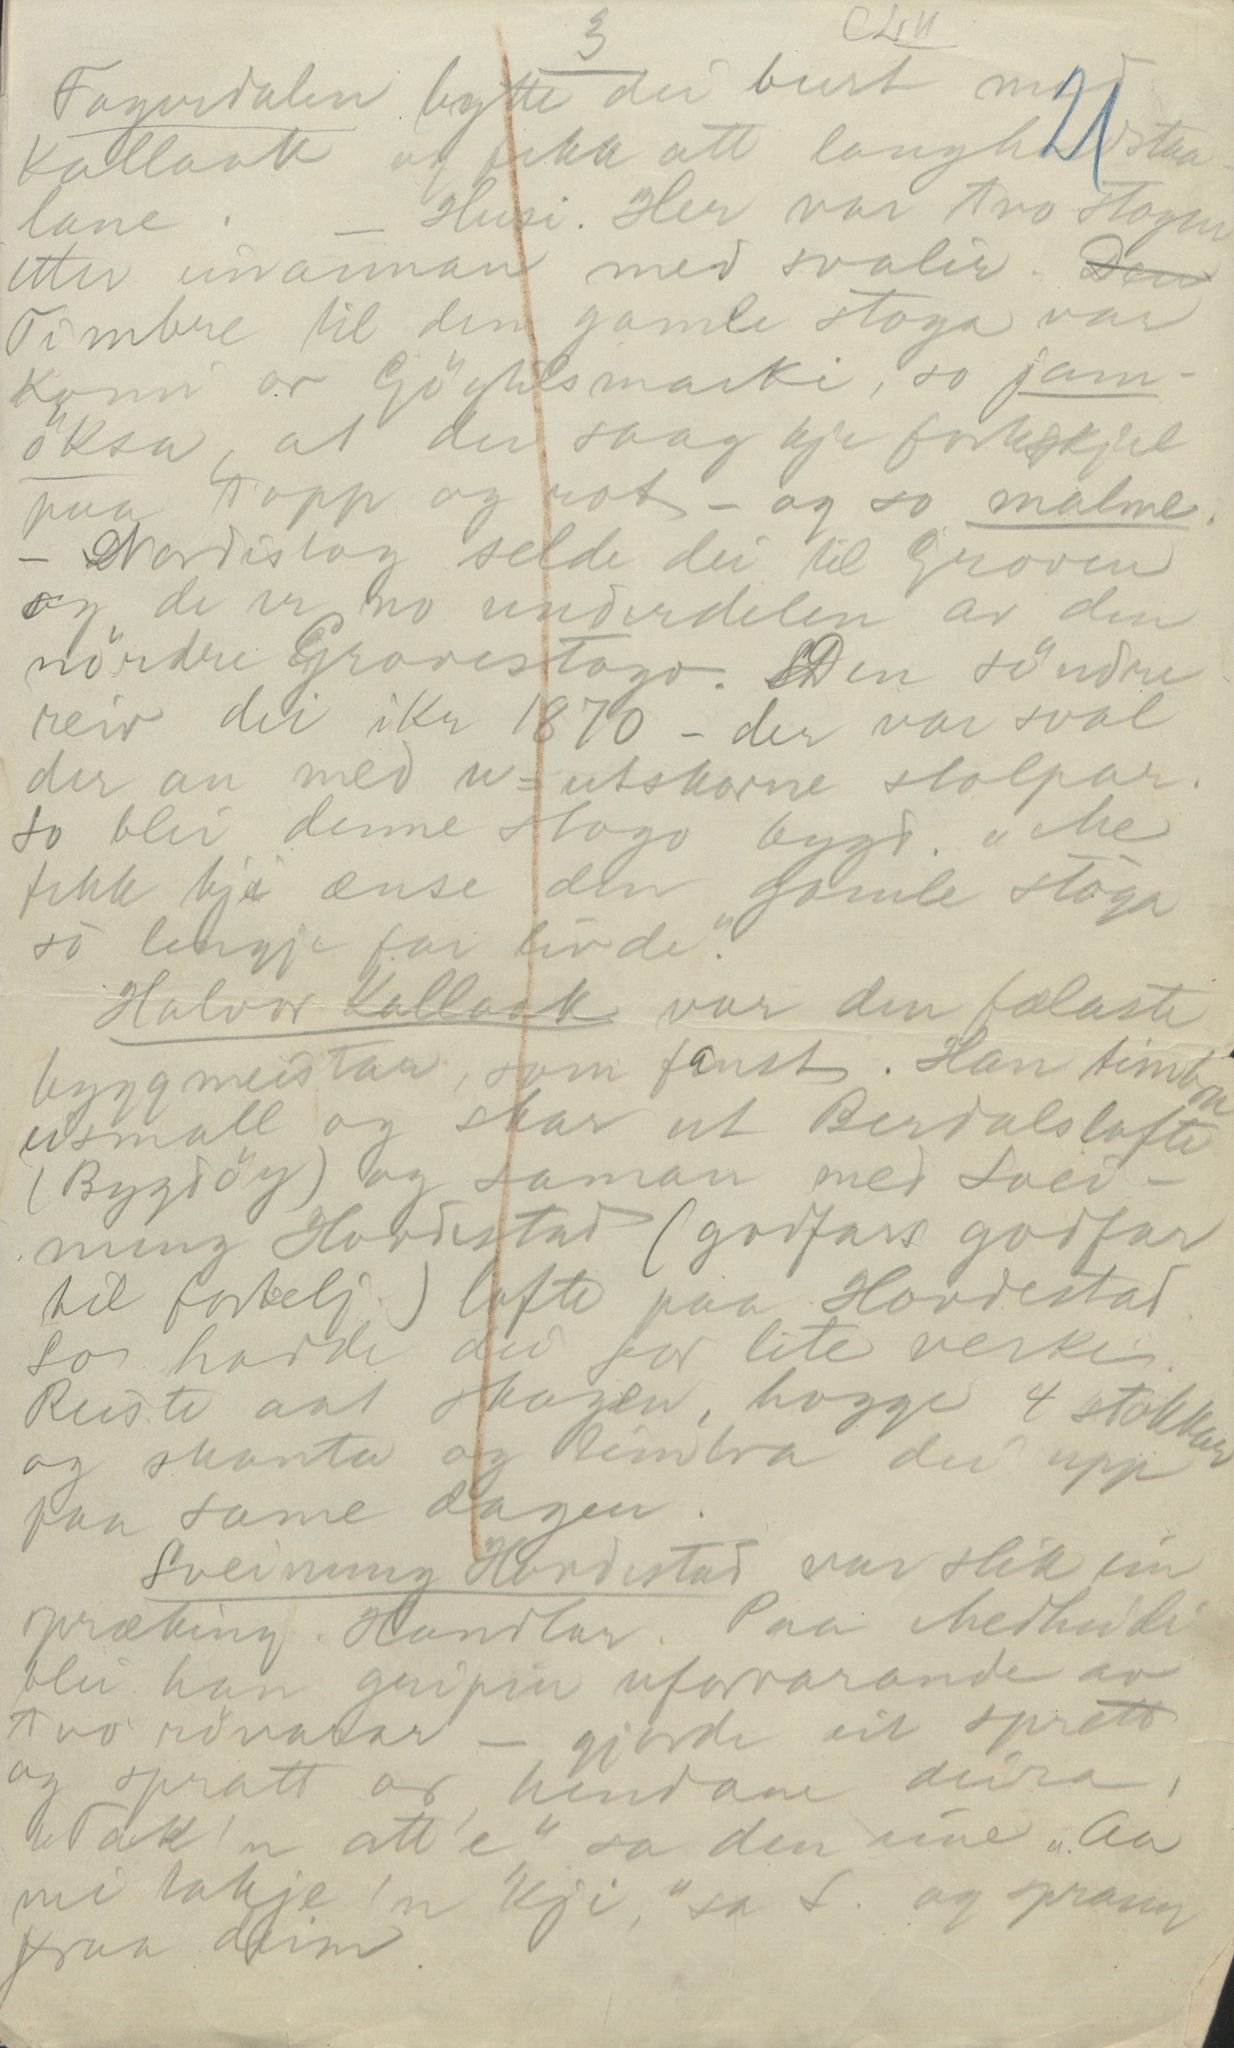 3
21
Fagerdalen bytte dei burt med
Kallaak og fekk att
lane. — Husi. Her var tvo stogur
etter einannan med svalir. Den
Timbre til den gamle stoga var
Komi or marki, so jam-
öksa, at der saag kje skjel
paa topp og rot — og so malme.
— Nordistog selde dei til Groven
og de er no underdelen av den
nördre Grovestogo. Den söndre
reiv dei ikr 1870 — der var sval
der an med u=utskorne stolpar.
So blei denne stogo bygd. "Me
fekk kje ænse den gamle stöga
sö lengje far livde".
Halvor Kallaak var den fælaste
byggmeistar, som fanst. Han timbra
og skar ut Berdalslofte
(Bygdöy) og saman med Svei-
nung Hovdestad (godfars godfar
til fortelj.) lofte paa Hovdestad.
So hadde dei for lite verke.
Reiste aat skogen, hogge 4 stokkar
og skanta og timbra dei upp
paa same dagen.
Sveinung Hovdestad var slik ein
spræking. Handlar. Paa Medheidi
blei han gripin uforvarande av
tvo rövarar — gjorde eit sprett
og spratt or hendane deira,
"Tak 'n att'e" sa den eine "Aa
me takje 'n kji," sa S. og sprang
fraa deim.